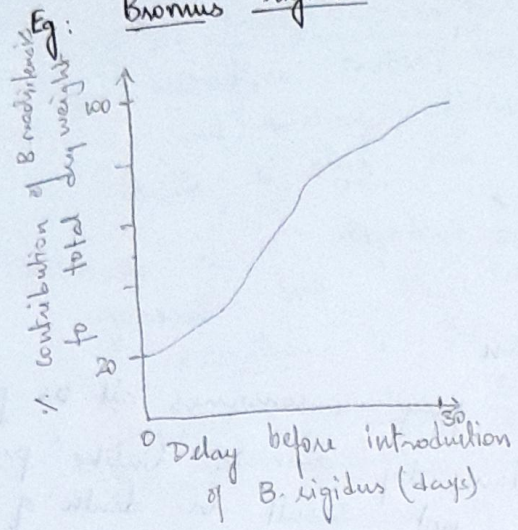 Eg:
Bromus
% contribution of B. madritensis
to total dry weight
100
20
0
30
Delay before introduction
of B. rigidus (days)